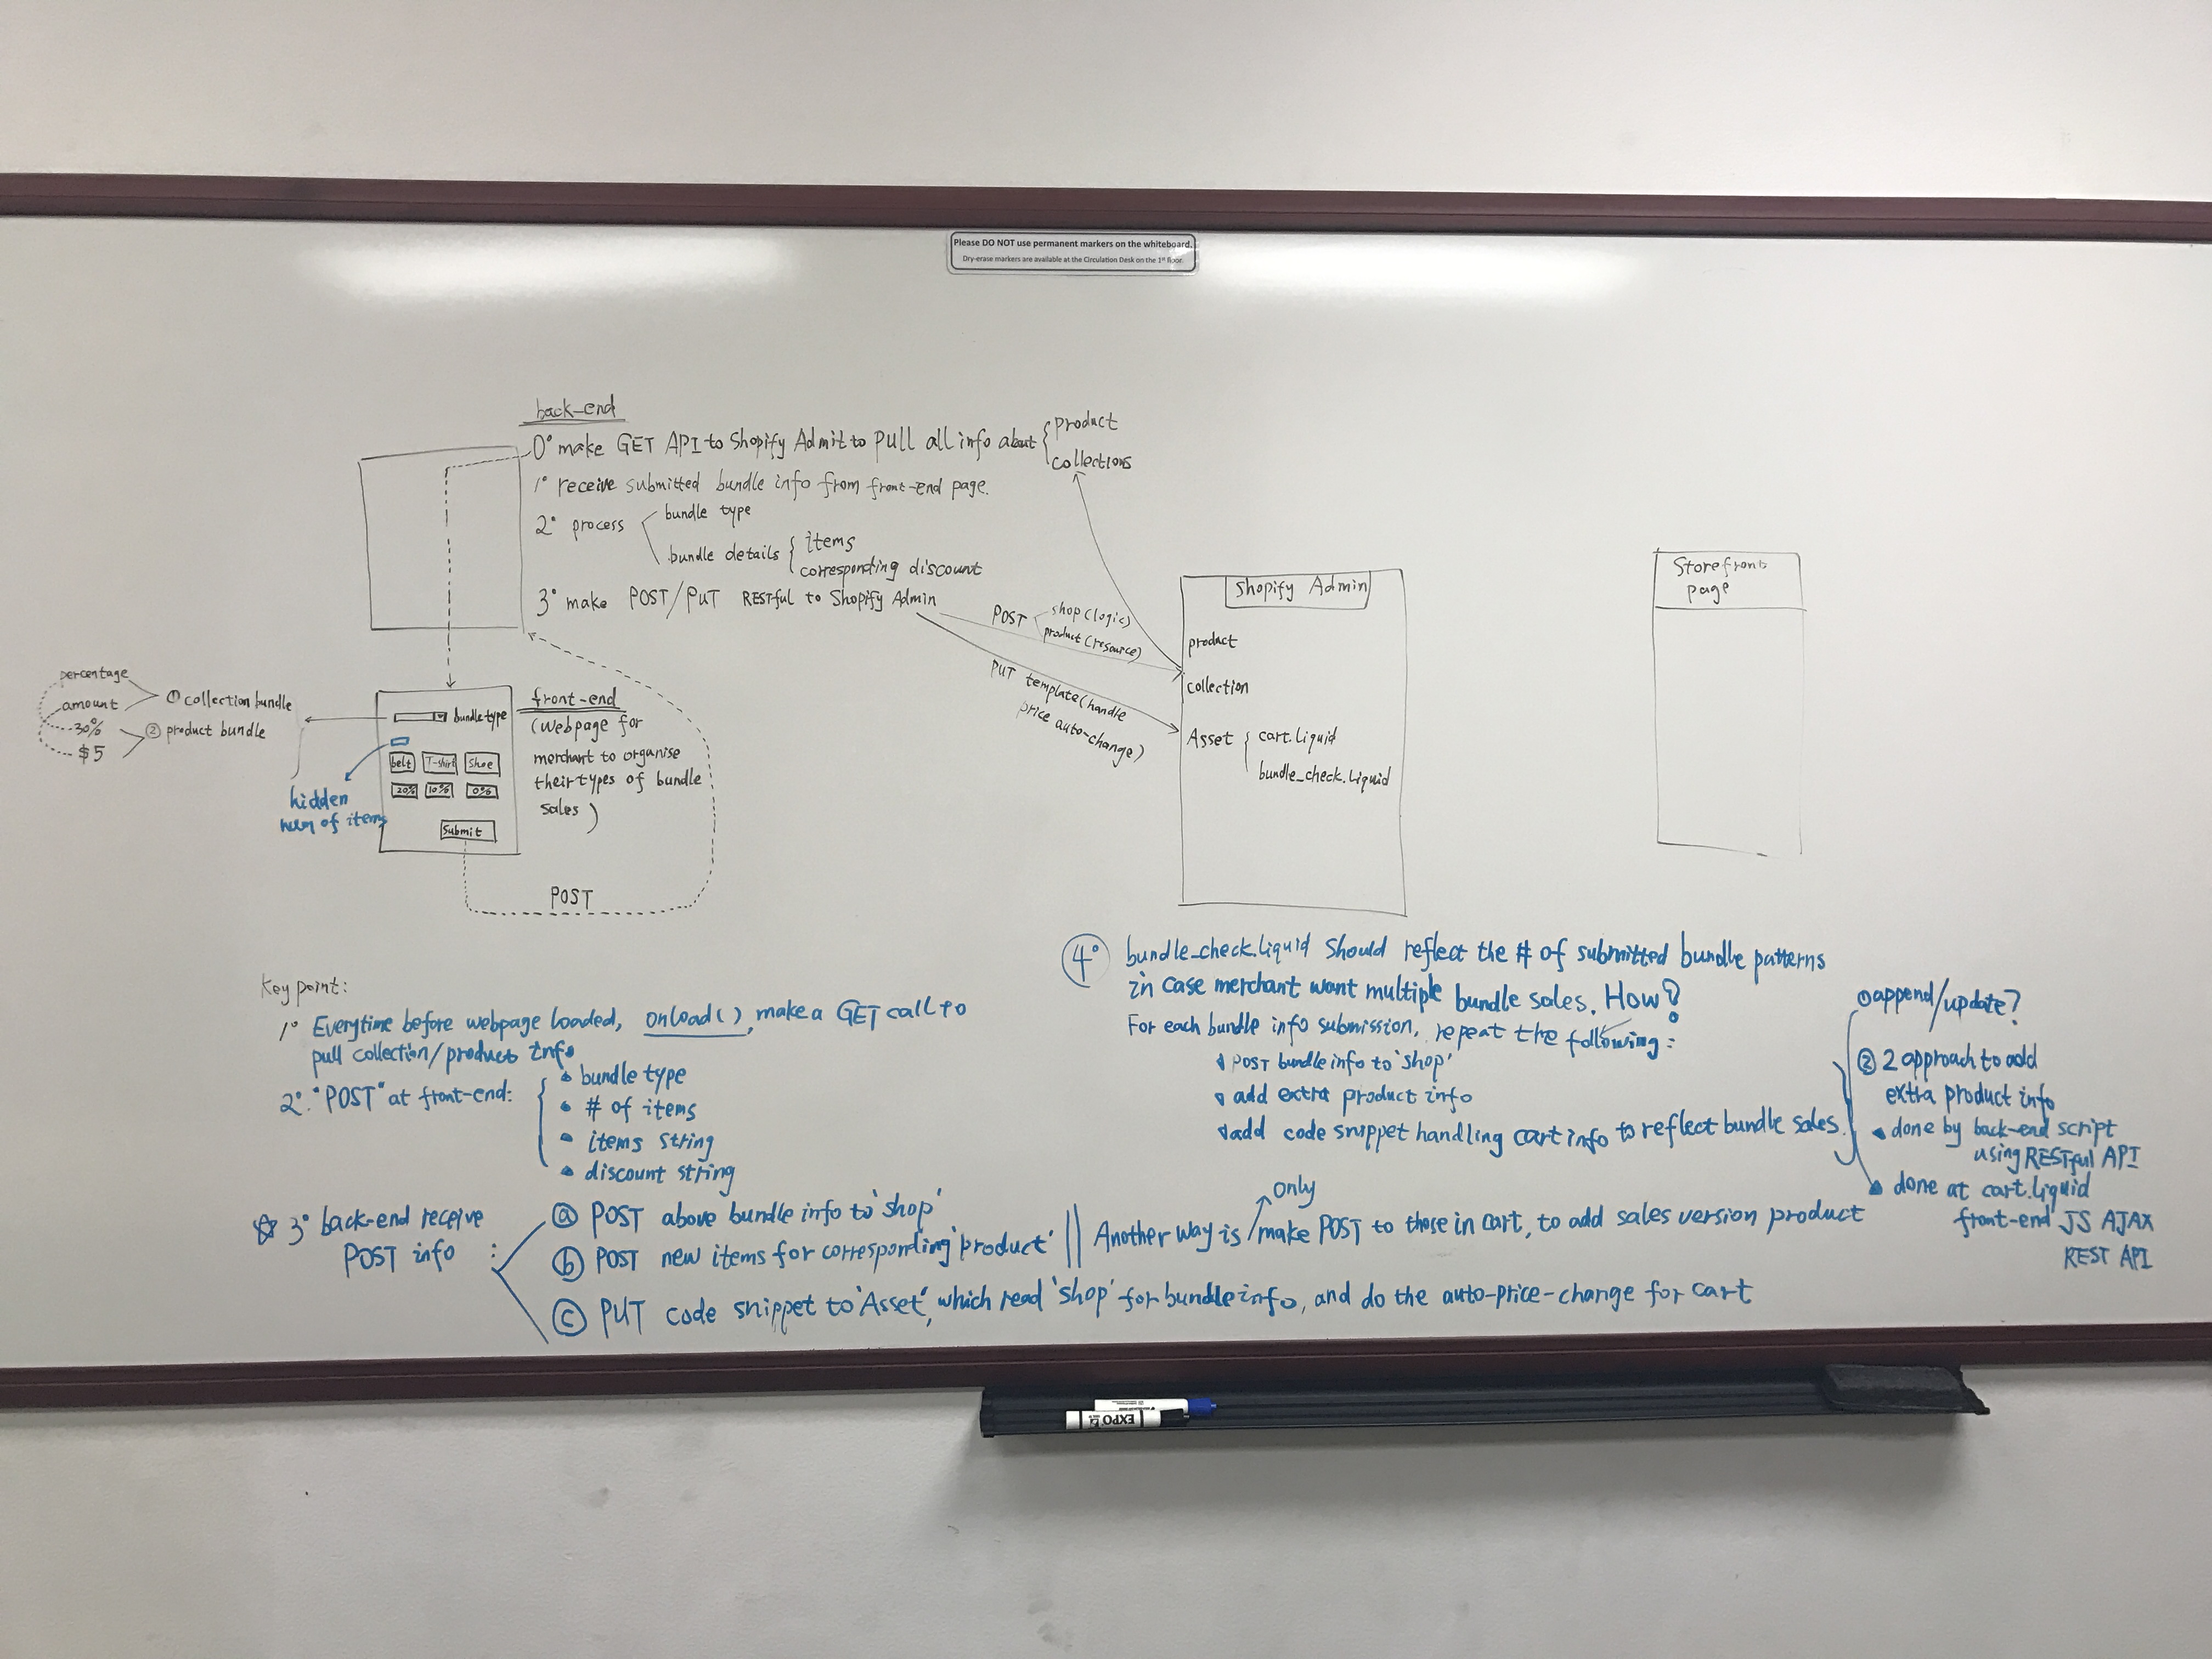 Please DO NOT use permanent markers on the whiteboard.
Dry-erase markers are available at the Circulation Desk on the 1st floor.
back-end
0° make GET API to Shopify Admit to pull all info about
product
collections
1° receive submitted bundle info from front-end page.
2° process
bundle type
bundle details
items
corresponding discount
3° make POST/PUT RESTful to Shopify Admin
POST
shop (logic)
product (resource)
PUT template (handle
price auto-change)
Shopify Admin
product
collection
Asset
cart.liquid
bundle_check.liquid
Storefront
page
percentage
amount
30%
$5
① collection bundle
② product bundle
bundle type
belt T-shirt Shoe
20% 10% 0%
Submit
hidden
num of items
front-end
(webpage for
merchant to organise
their types of bundle
sales)
POST
Key point:
1° Everytime before webpage loaded, onload(), make a GET call to
pull collection/product info
2°. "POST" at front-end:
• bundle type
• # of items
• items string
• discount string
☆ 3° back-end receive
POST info :
ⓐ POST above bundle info to 'shop'
ⓑ POST new items for corresponding 'product'
ⓒ PUT code snippet to 'Asset', which read 'shop' for bundle info, and do the auto-price-change for cart
Another way is make POST to those in cart, to add sales version product
only
4° bundle_check.liquid should reflect the # of submitted bundle patterns
in case merchant want multiple bundle sales. How?
For each bundle info submission, repeat the following:
• POST bundle info to 'shop'
• add extra product info
• add code snippet handling cart info to reflect bundle sales.
① append/update?
② 2 approach to add
extra product info
• done by back-end script
using RESTful API
• done at cart.liquid
front-end JS AJAX
REST API
EXPO